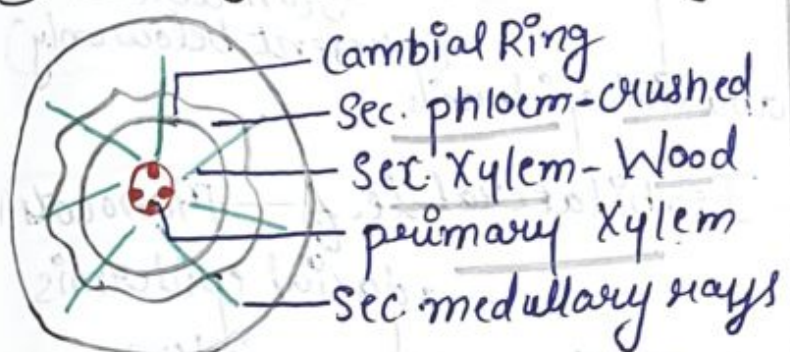 Cambial Ring
Sec. phloem-crushed.
Sec. Xylem- Wood
primary Xylem
Sec. medullary rays